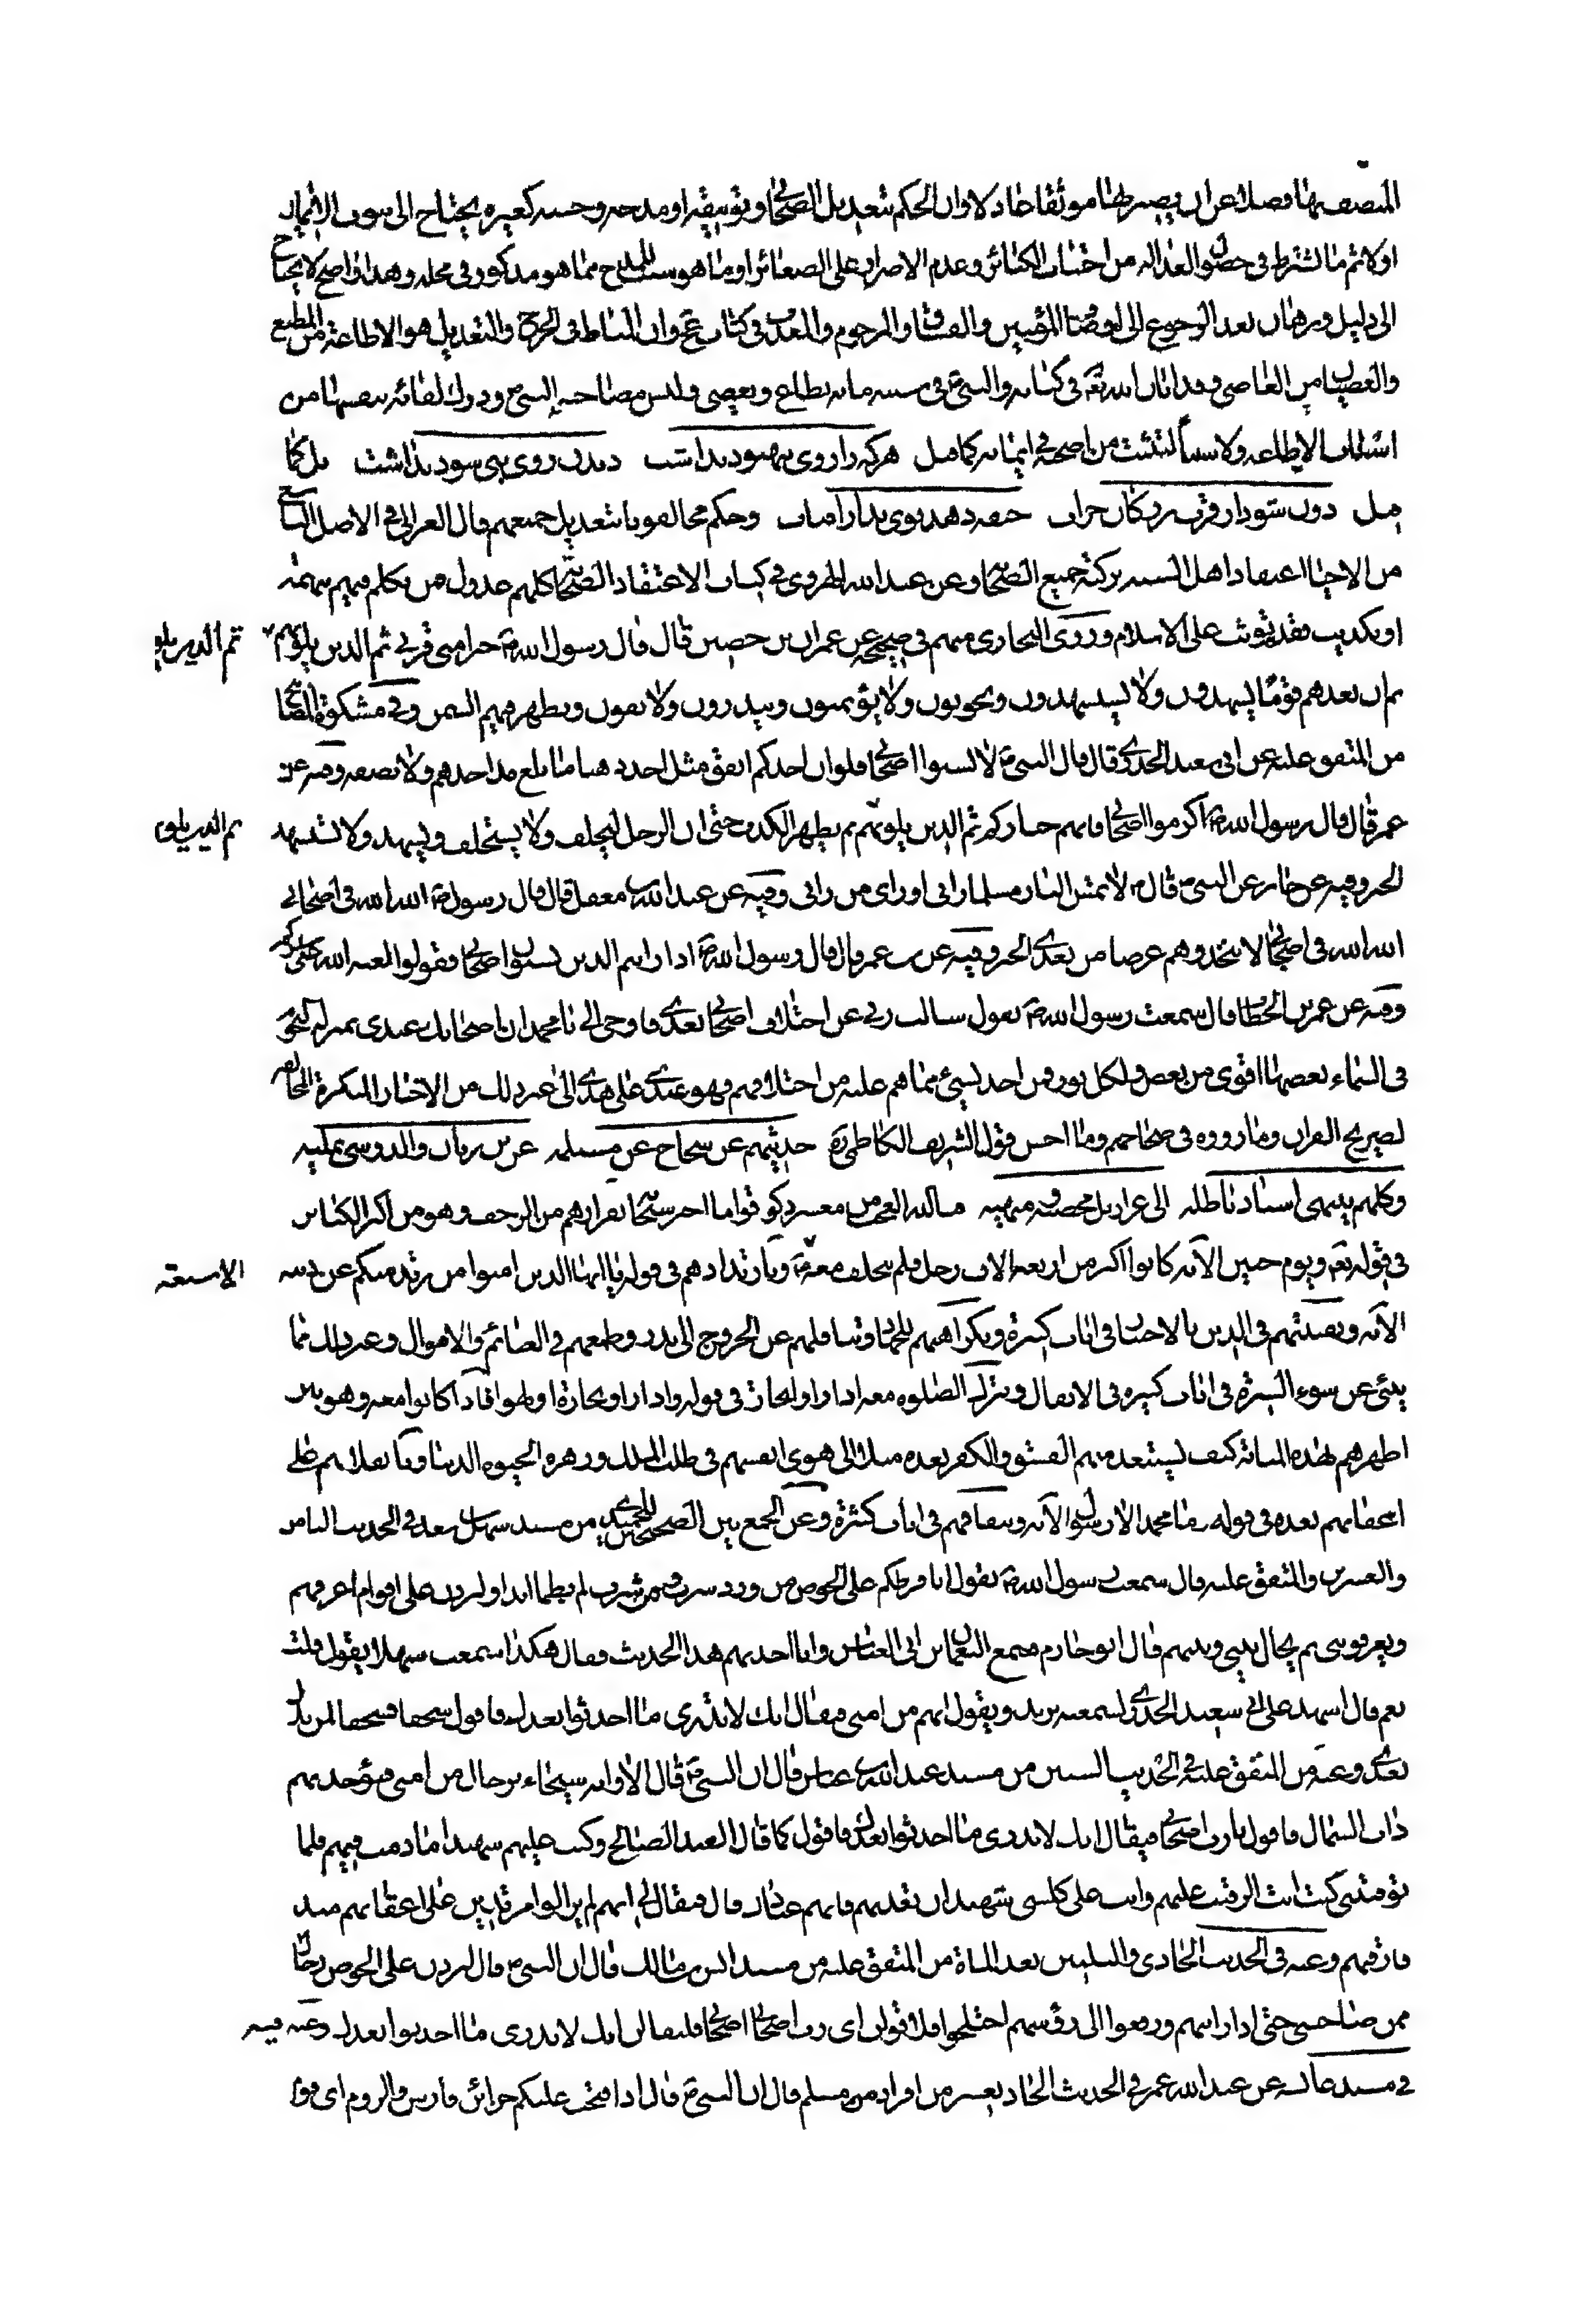 المتصف بها فضلا عن ان يصير بها موثقا عادلا وان الحكم بتعديل الصحابي وتوثيقه او مدحه وحسنه كغيره يحتاج الى ثبوت الايمان
اولا ثم ما يشترط في حصول العدالة من اجتناب الكبائر وعدم الاصرار على الصغائر او ما هو سبب للمدح مما هو مذكور في محله وهذا واضح لا يحتاج
الى دليل وبرهان بعد الرجوع الى المؤمنين والفساق والمرحوم والمعذب في كتاب وان المناط في الجرح والتعديل هو الاطاعة من المطيع
والعصيان من العاصي وقد ابان الله تع في كتابه والنبي ص في سنته ما به يطاع ويعصى وليس مصاحبة النبي ص ودرك لقائه بنفسها من
اسباب الاطاعة ولا سببا لتثبت من صحبه في ايمانه كامل هركه را روی بهبود نداشت ديدن روی نبی سود نداشت بل كما
قيل وحكم مخالفونا بتعديل جميعهم قال الغزالي في الاصل التاسع
من الاحيا اعتقاد اهل السنة تزكية جميع الصحابة وعن عبد الله الهروي في كتاب الاعتقاد الصحابة كلهم عدول من تكلم فيهم بتهمة
او تكذيب فقد توثب على الاسلام وروى البخاري منهم في صحيحه عن عمران بن حصين قال قال رسول الله ص خير امتي قرني ثم الذين يلونهم ثم الذين يلونهم
ثم ان بعدهم قوما يشهدون ولا يستشهدون ويخونون ولا يؤتمنون وينذرون ولا يفون ويظهر فيهم السمن وفي مشكوة المصابيح
من المتفق عليه عن ابي سعيد الخدري قال قال النبي ص لا تسبوا اصحابي فلو ان احدكم انفق مثل احد ذهبا ما بلغ مد احدهم ولا نصيفه وفيه عن
عمر قال قال رسول الله ص اكرموا اصحابي فانهم خياركم ثم الذين يلونهم ثم يظهر الكذب حتى ان الرجل ليحلف ولا يستحلف ويشهد ولا يستشهد
ثم الذين يلونهم
الخبر وفيه عن جابر عن النبي ص قال لا تمس النار مسلما راني او راى من راني وفيه عن عبد الله بن مغفل قال قال رسول الله ص الله الله في اصحابي
الله الله في اصحابي لا تتخذوهم غرضا من بعدي الخبر وفيه عن بن عمر قال قال رسول الله ص اذا رايتم الذين يسبون اصحابي فقولوا لعنة الله على شركم
وفيه عن عمر بن الخطاب قال سمعت رسول الله ص يقول سالت ربي عن اختلاف اصحابي بعدي فاوحى الي يا محمد ان اصحابك عندي بمنزلة النجوم
في السماء بعضها اقوى من بعض ولكل نور فمن اخذ بشيء مما هم عليه من اختلافهم فهو عندي على هدى الى غير ذلك من الاخبار المنكرة المخالفة
لصريح القران وما رووه في صحاحهم وما احسن قول الشريف الكاظمي ره حديثهم عن سجاح عن مسيلمة عن بن ريان والدوسي يمليه
وكلهم ينتهي اسناد باطله الى عزازيل منهيه
في قوله تع ويوم حنين الآية كانوا اكثر من اربعة الاف رجل فلم يتخلف معه ص الا سبعة وبارتدادهم في قوله يا ايها الذين امنوا من يرتد منكم عن دينه
الآية في ايات كثيرة وبكراهتهم للجهاد وتثاقلهم عن الخروج الى بدر وطمعهم في الغنائم والاموال وغير ذلك مما
ينبئ عن سوء السيرة في ايات كثيرة في الانفال وبترك الصلوة معه اذا راوا التجارة في قوله واذا راوا تجارة او لهوا فاذا كانوا معه وهو بين
اظهرهم بهذه المثابة كيف يستبعد منهم الفسق والكفر بعده ميلا الى هوى انفسهم في طلب الملك وزهرة الحيوة الدنيا وبانقلابهم على
اعقابهم بعده في قوله وما محمد الا رسول الآية وبنفاقهم في ايات كثيرة وعن الجمع بين الصحيحين للحميدي من مسند سهل بن سعد في الحديث الثامن
والعشرين والمتفق عليه قال سمعت رسول الله ص يقول انا فرطكم على الحوض من ورد شرب ومن شرب لم يظما ابدا وليردن علي اقوام اعرفهم
ويعرفوني ثم يحال بيني وبينهم قال ابو حازم فسمع النعمان بن ابي العباس وانا احدثهم هذا الحديث فقال هكذا سمعت سهلا يقول قلت
نعم قال اشهد على ابي سعيد الخدري لسمعته يزيد ويقول انهم من امتي فيقال انك لا تدري ما احدثوا بعدك فاقول سحقا سحقا لمن بدل
بعدي وعنه من المتفق عليه في الحديث الستين من مسند عبد الله بن عباس قال ان النبي ص قال الا وانه سيجاء برجال من امتي فيؤخذ بهم
ذات الشمال فاقول يا رب اصحابي فيقال انك لا تدري ما احدثوا بعدك فاقول كما قال العبد الصالح وكنت عليهم شهيدا ما دمت فيهم فلما
توفيتني كنت انت الرقيب عليهم وانت على كل شيء شهيد ان تعذبهم فانهم عبادك قال فيقال لي انهم لم يزالوا مرتدين على اعقابهم منذ
فارقتهم وعنه في الحديث الحادي والثلثين بعد المائة من المتفق عليه من مسند انس بن مالك قال ان النبي ص قال ليردن على الحوض رجال
ممن صاحبني حتى اذا رايتهم ورفعوا الى رؤسهم اختلجوا فلاقولن اي رب اصحابي اصحابي فليقالن انك لا تدري ما احدثوا بعدك وعنه فيه
في مسند عن عبد الله عمر في الحديث الحادي عشر من افراد مسلم قال ان النبي ص قال اذا فتحت عليكم خزائن فارس والروم اي قوم